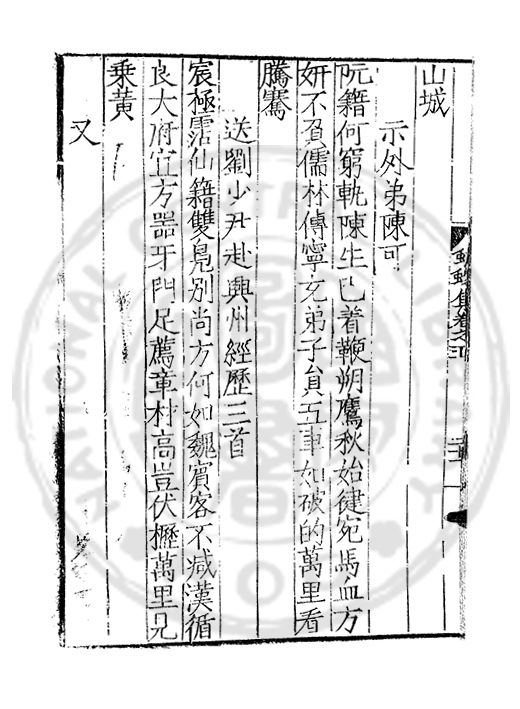 山城
示外弟陳可
阮籍何窮軌陳生已着鞭朔鷹秋始健宛馬血方
妍不負儒林傳寧友弟子員五車如破的萬里看
騰騫
送劉少尹赴興州經歷三首
宸極霑仙籍雙鳧別尚方何如魏賓客不减漢循
良大府宜方器牙門足薦章村高豈伏櫪萬里見
乗黄
又
集卷之